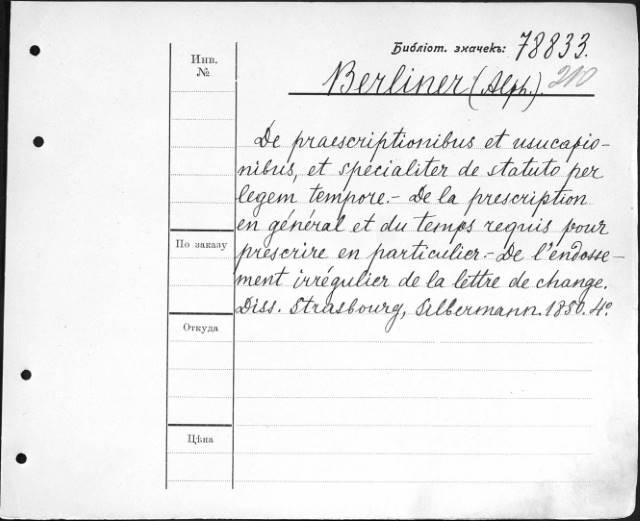 Библіот. значекъ: 78833.
Инв. №
Berliner (Alph.). 210
De praescriptionibus et usucapio-
nibus, et specialiter de statuto per
legem tempore.- De la prescription
en général et du temps requis pour
prescrire en particulier.- De l'endosse-
ment irrégulier de la lettre de change.
Diss. Strasbourg, Silbermann. 1850. 4º.
По заказу
Откуда
Цѣна